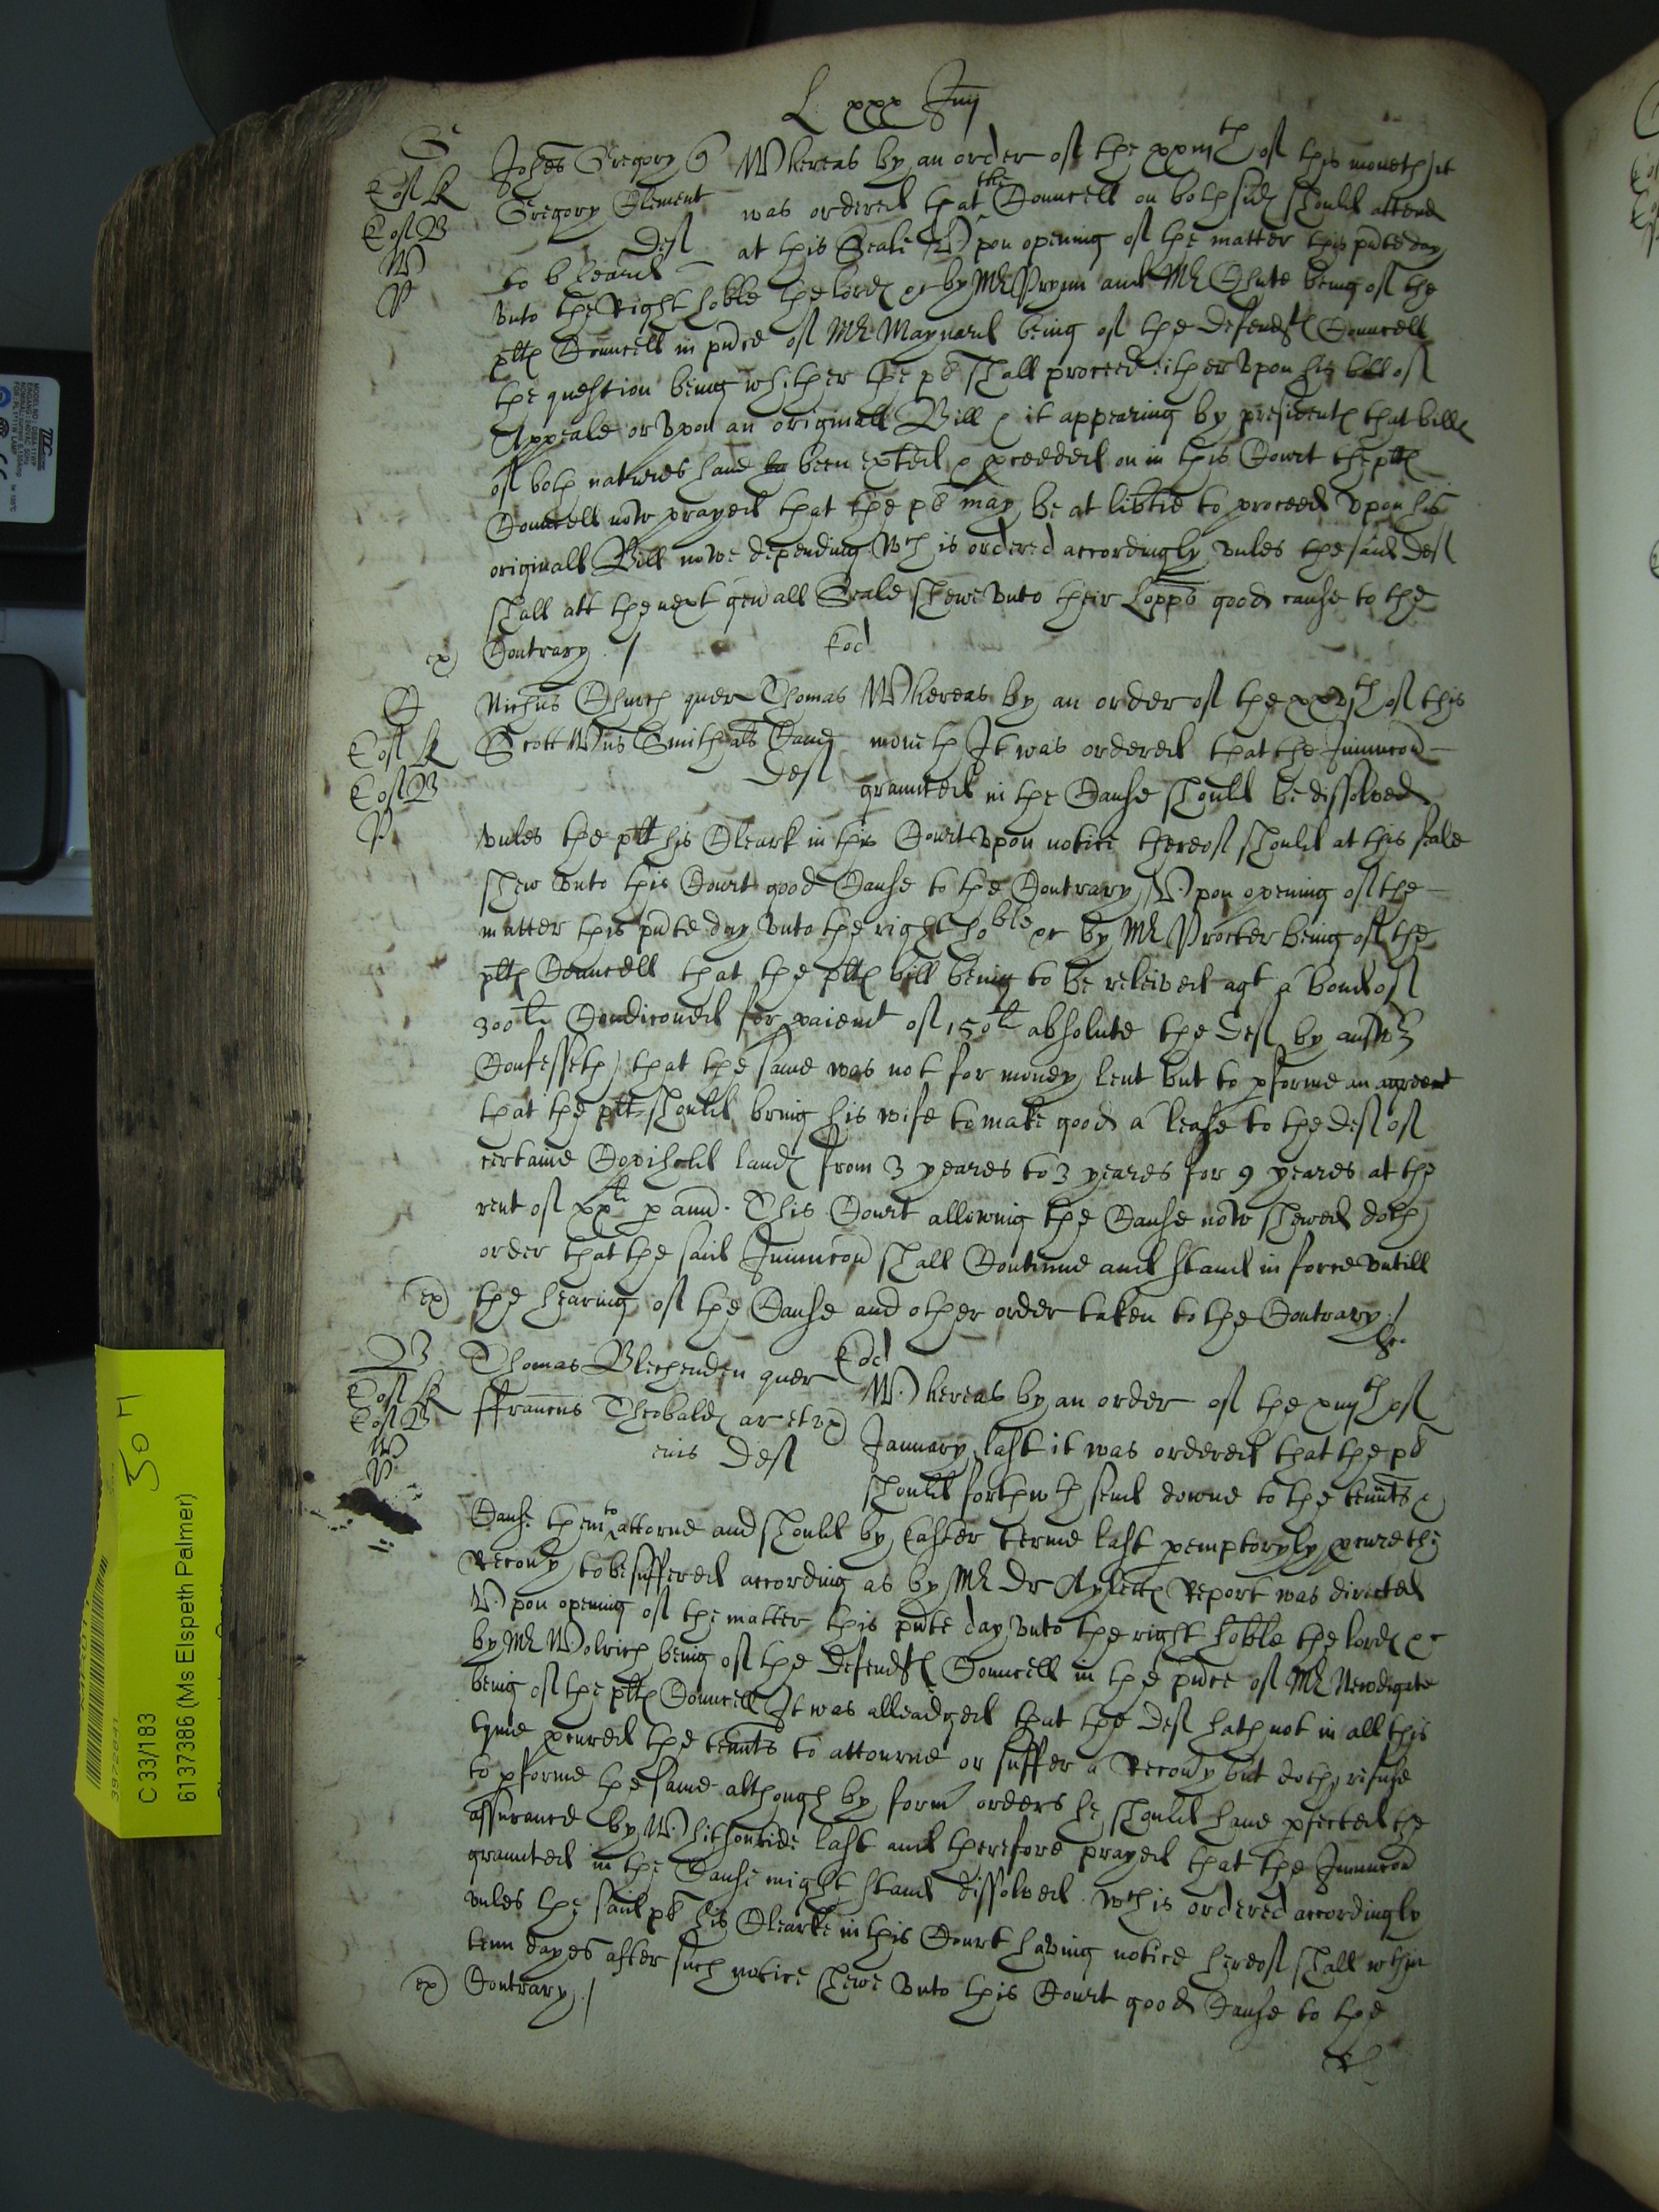 L xxx Juij
G
Johes Gregory q Whereas by an order of the xxiijth of this moneth it
Cof K
Gregory Clement was ordered that the Councell on both sids should attend
Cof B
Def at this Seale Vpon opening of the matter this pnte day
W
to b heard
P
vnto the Right hoble the lords &c by Mr Prynn and Mr Chute being of the
plts Councell in pnce of Mr Maynard being of the defendts Councell
the question being whither the pl shall proceed either vpon his bill of
Appeale or vpon an originall Bill & it appearing by presidents that bills
of both natures have been exhted & proceeded on in this Court the plts
Councell now prayed that the pl may be at libtie to proceed vpon his
originall Bill nowe depending Wch is ordered accordingly vnles the said def
shall att the next genall Seale shewe vnto their Lopps good cause to the
ex) Contrary ./
Eod
C
Nichus Church quer Thomas Whereas by an order of the xxvth of this
Cof K
Scott Wus Smith als Cané moneth It was ordered that the Iniuncon
Cof B
Def graunted in the Cause should be dissolved
P
vnles the plt his Cleark in this Court vpon notice thereof should at this seale
shew vnto this Court good Cause to the Contrary, Vpon opening of the
matter this pnte day vnto the right hoble &c by Mr Procter being of the
plts Councell that the plts bill being to be releived agt a Bond of
300li Condiconed for paiemt of 150li absolute the Def by answr
Confesseth that the same was not for money lent but to pforme an agreemt
that the plt should bring his wife to make good a lease to the def of
certaine Copihold lands from 3 yeares to 3 yeares for 9 yeares at the
rent of xxli p ann. This Court allowing the Cause now shewed doth
order that the said Iniuncon shall Continue and stand in force vntill
ex) the hearing of the Cause and other order taken to the Contrary ./
Eod
B
Thomas Blechenden quer Whereas by an order of the xiiijth of
Cof K
Cof B
ffrancus Theobalds ar et vx) January last it was ordered that the pl
W
eius Def
P
should forthwth send downe to the tennts &
Cause them to attorne and should by Easter terme last pemptoryly pcure the
Recouy to be suffered according as by Mr Dr Ayletts Report was directed
Vpon opening of the matter this pnte day vnto the right hoble the lords &c
by Mr Wolrich being of the Defendts Councell in the pnce of Mr Newdigate
being of the plts Councell It was alleadged that the Def hath not in all this
tyme pcured the tennts to attourne or suffer a Recouy but doth refuse
to pforme the same although by formr orders he should haue pfected the
assurance by Whitsontide last and therefore prayed that the Iniuncon
graunted in the Cause might stand dissolved . wch is ordered accordingly
vnles the said pl his Clearke in this Court having notice hereof shall wthin
tenn dayes after such notice shewe vnto this Court good Cause to the
ex) Contrary ./
TTC
C 33/183
6137386 (Ms Elspeth Palmer)
50 H